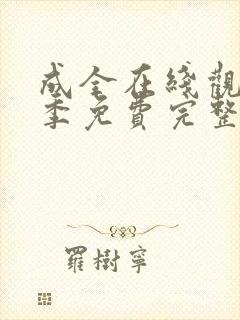 成全在綫觀
季免費完整
羅樹寧